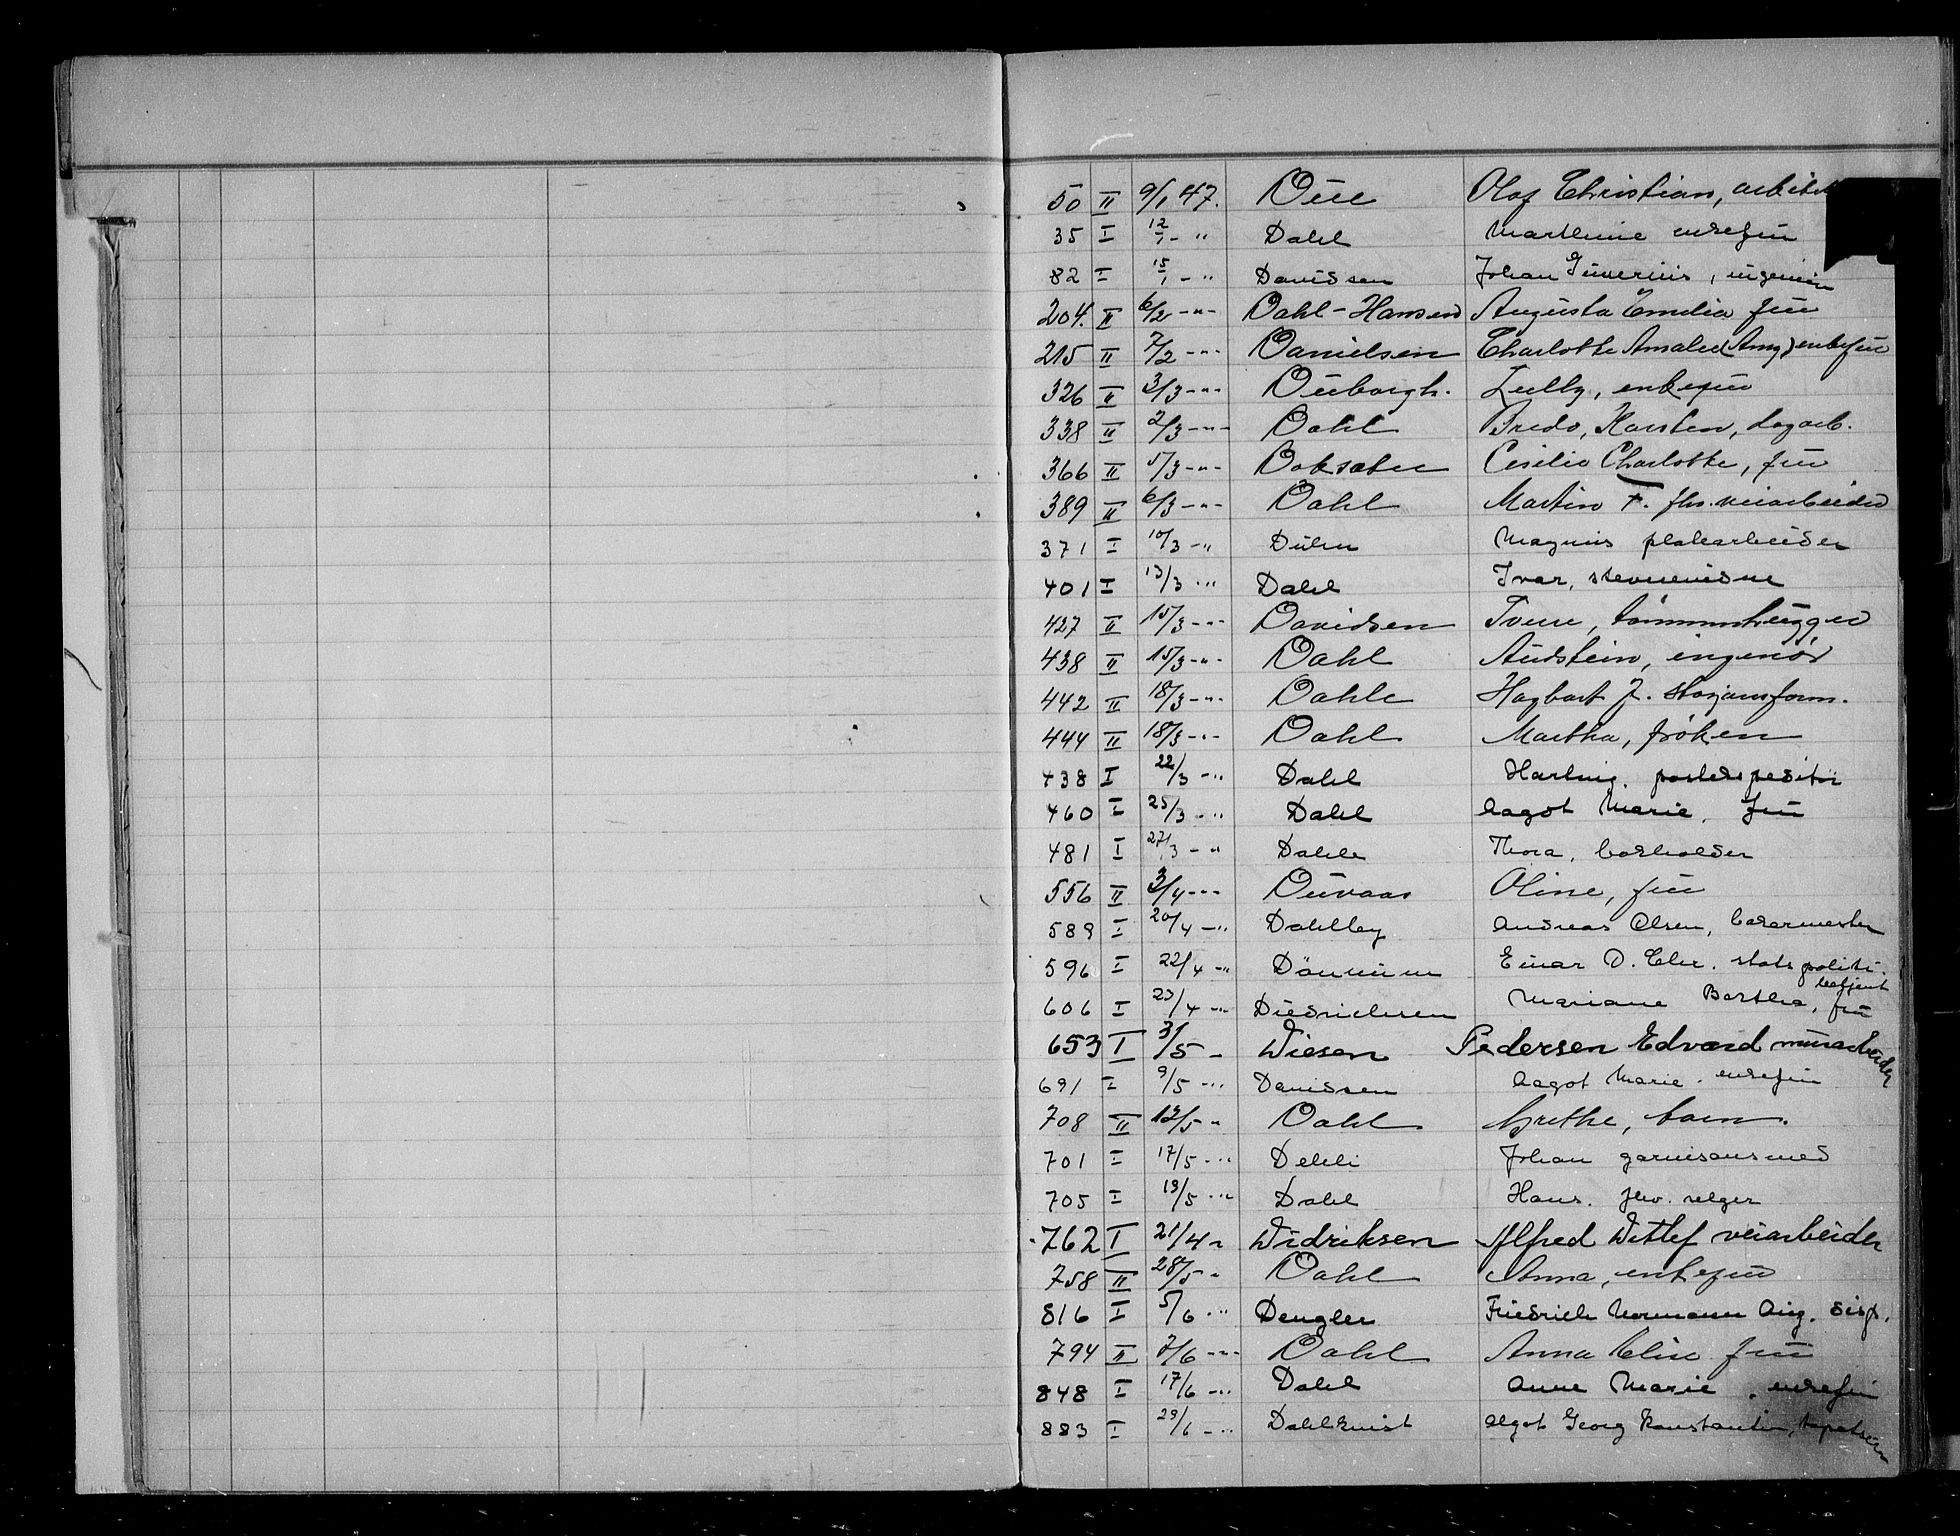 50 II 9/1 47. Due Olaf Christian,
35 I 12/1 - " Dahl enkefru
82 I 15/1 - " Davidsen Johan ingeniør
204. II 6/2 - " - Dahl-Hansen Augusta Emilia fru
215 II 7/2 - " - Danielsen Charlotte Amalie (Amy) enkefru
326 II 3/3 - " - Dueborgh. Zully, enkefru
338 II 2/3 - " - Dahl Bredo, Karsten, lagarb.
366 II 5/3 - " - Doksæter Cesilie Charlotte, fru
389 II 6/3 - " - Dahl Martin F. fhv. veiarbeider
371 I 10/3 - " Magnus platearbeider
401 I 13/3 - " Dahl Ivar,
427 II 15/3 - " - Davidsen Sverre, tømmerhugger
438 II 15/3 - " - Dahl Audstein, ingeniør
442 II 18/3 - " - Dahle Hagbart J.
444 II 18/3 - " - Dahl Martha, frøken
438 I 22/3 - " Dahl Hartvig. postekspeditør
460 I 25/3 - " Dahl Aagot Marie, fru
481 I 27/3 - " Dahle Thora,
556 II 3/4 - " - Duvaas Oline, fru
589 I 20/4 - " Dahlby Andreas Olsen,
596 I 22/4 - " Einar D. Chr. statspoliti-
betjent
606 I 23/4 - " Diedrichsen Mariane Bertha, fru
653 I 3/5 - Diesen Pedersen Edvard murarbeider
691 I 9/5 - " Davidsen Aagot Marie. enkefru
708 II 12/5 " Dahl Grethe, barn.
701 I 17/5 - " Dehli Johan
705 I 19/5 - " Dahl Hans. fhv. selger
762 I 21/4 " Didriksen Alfred Ditlef veiarbeider
758 II 28/5 " Dahl Anna, enkefru
816 I 5/6 - " Dengler Friedrich Normann Aug. disp.
794 II 7/6 - " - Dahl Anna Elise fru
848 I 17/6 - " Dahl Anne Marie, enkefru
883 I 29/6 - " Dahlkvist Algot Georg Konstantin, tapetserer